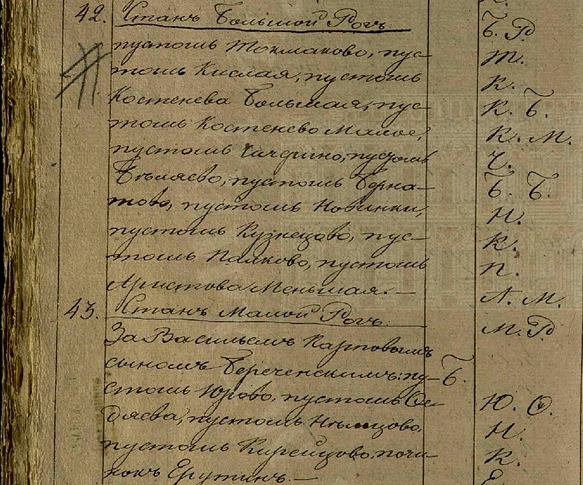 42. Станъ Большой Рогъ Б. Р.
пустошь Токмаково, пус- Т.
тошь Кислая, пустошь К.
Костенева Большая, пус- К. Б.
тошь Костенево Малое, К. М.
пустошь Чичерино, пустошь Ч.
Бѣляево, пустошь Берна- Б. Б.
тово, пустошь Новинки, Н.
пустошь Кузнецово, пус- К.
тошь Палково, пустошь П.
Аристова Меньшая.— А. М.
43. Станъ Малой Рогъ. М. Р.
За Васильемъ Карповымъ
сыномъ Береченскимъ: пу- Б.
стошь Юрово, пустошь Ое- Ю. О.
дяева, пустошь Нѣмцово, Н.
пустошь Кирейцово, почи- К.
нокъ Ерутинъ.— Е.